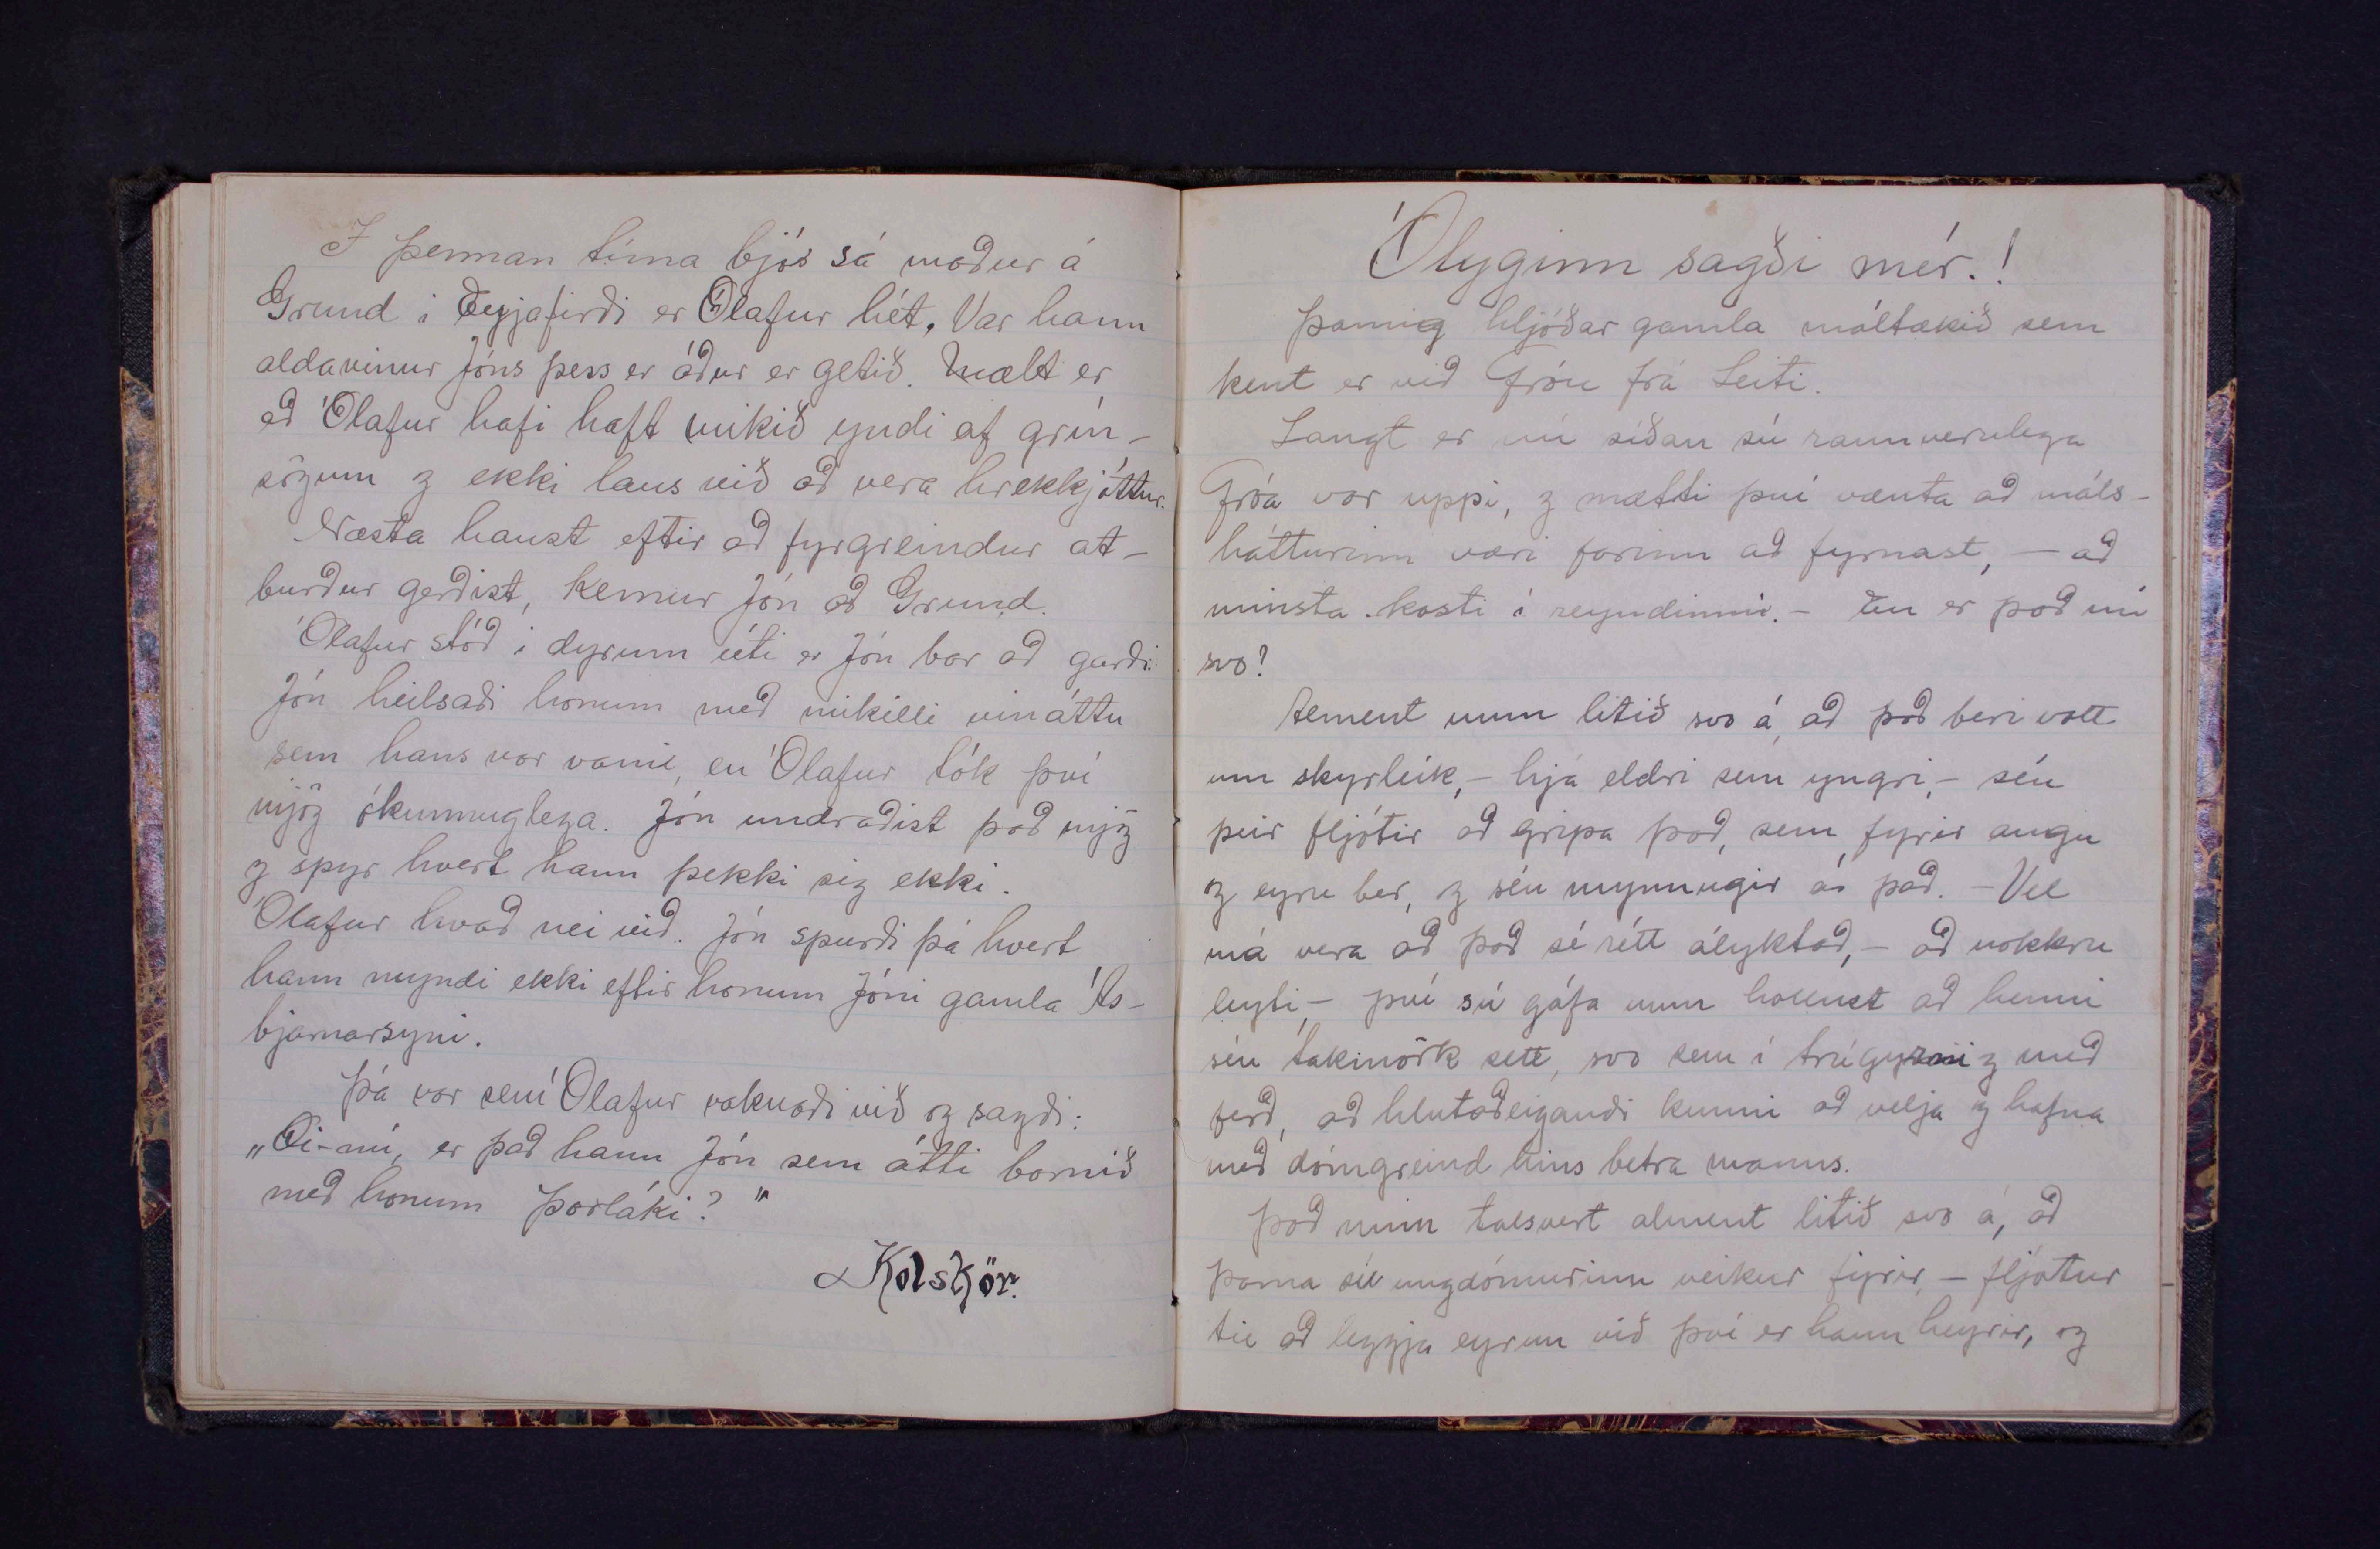 Í þennan tíma bjós sá maður á
Grund í Eyjafirði er Ólafur hét. Var hann
aldavinur Jóns þess er áður er getið. Mælt er
að Ólafur hafi haft mikið yndi af grín-
sögum og ekki laus við að vera hrekkjóttur.
Næsta haust eftir að fyrgreindur at-
burður gerðist, kemur Jón að Grund.
Ólafur stóð í dyrum úti er Jón bar að garði.
Jón heilsaði honum með mikilli vináttu
sem hans var vani, en Ólafur tók því
mjög ókunnuglega. Jón undraðist það mjög
og spyr hvert hann þekki sig ekki.
Ólafur kvað nei við. Jón spurði þá hvert
hann myndi ekki eftir honum Jóni gamla Ás-
bjarnarsyni.
Þá var sem Ólafur vaknaði við og sagði:
„Ói-nú, er það hann Jón sem átti barnið
með honum Þorláki?"
Kolskör.
Ólyginn sagði mér.!
Þannig hljóðar gamla máltækið sem
kent er við Gróu frá Leiti.
Langt er nú síðan sú raunverulega
Gróa var uppi, og mætti því vænta að máls-
hátturinn væri farinn að fyrnast, – að
minsta kosti í reyndinni. – En er það nú
svo?
Alment mun litið svo á, að það beri vott
um skyrleik, – hjá eldri sem yngri, – séu
þeir fljótir að grípa það, sem fyrir augu
og eyru ber, og séu mynnugir á það. – Vel
má vera að það sé rétt ályktað, – að nokkru
leyti, – því sú gáfa mun hollust að henni
séu takmörk sett, svo sem í trúgyrni og með
ferð, að hlutaðeigandi kunni að velja og hafna
með dómgreind hins betra manns.
Það mun talsvert alment litið svo á, að
þarna sé ungdómurinn veikur fyrir, – fljótur
til að leggja eyrun við því er hann heyrir, og